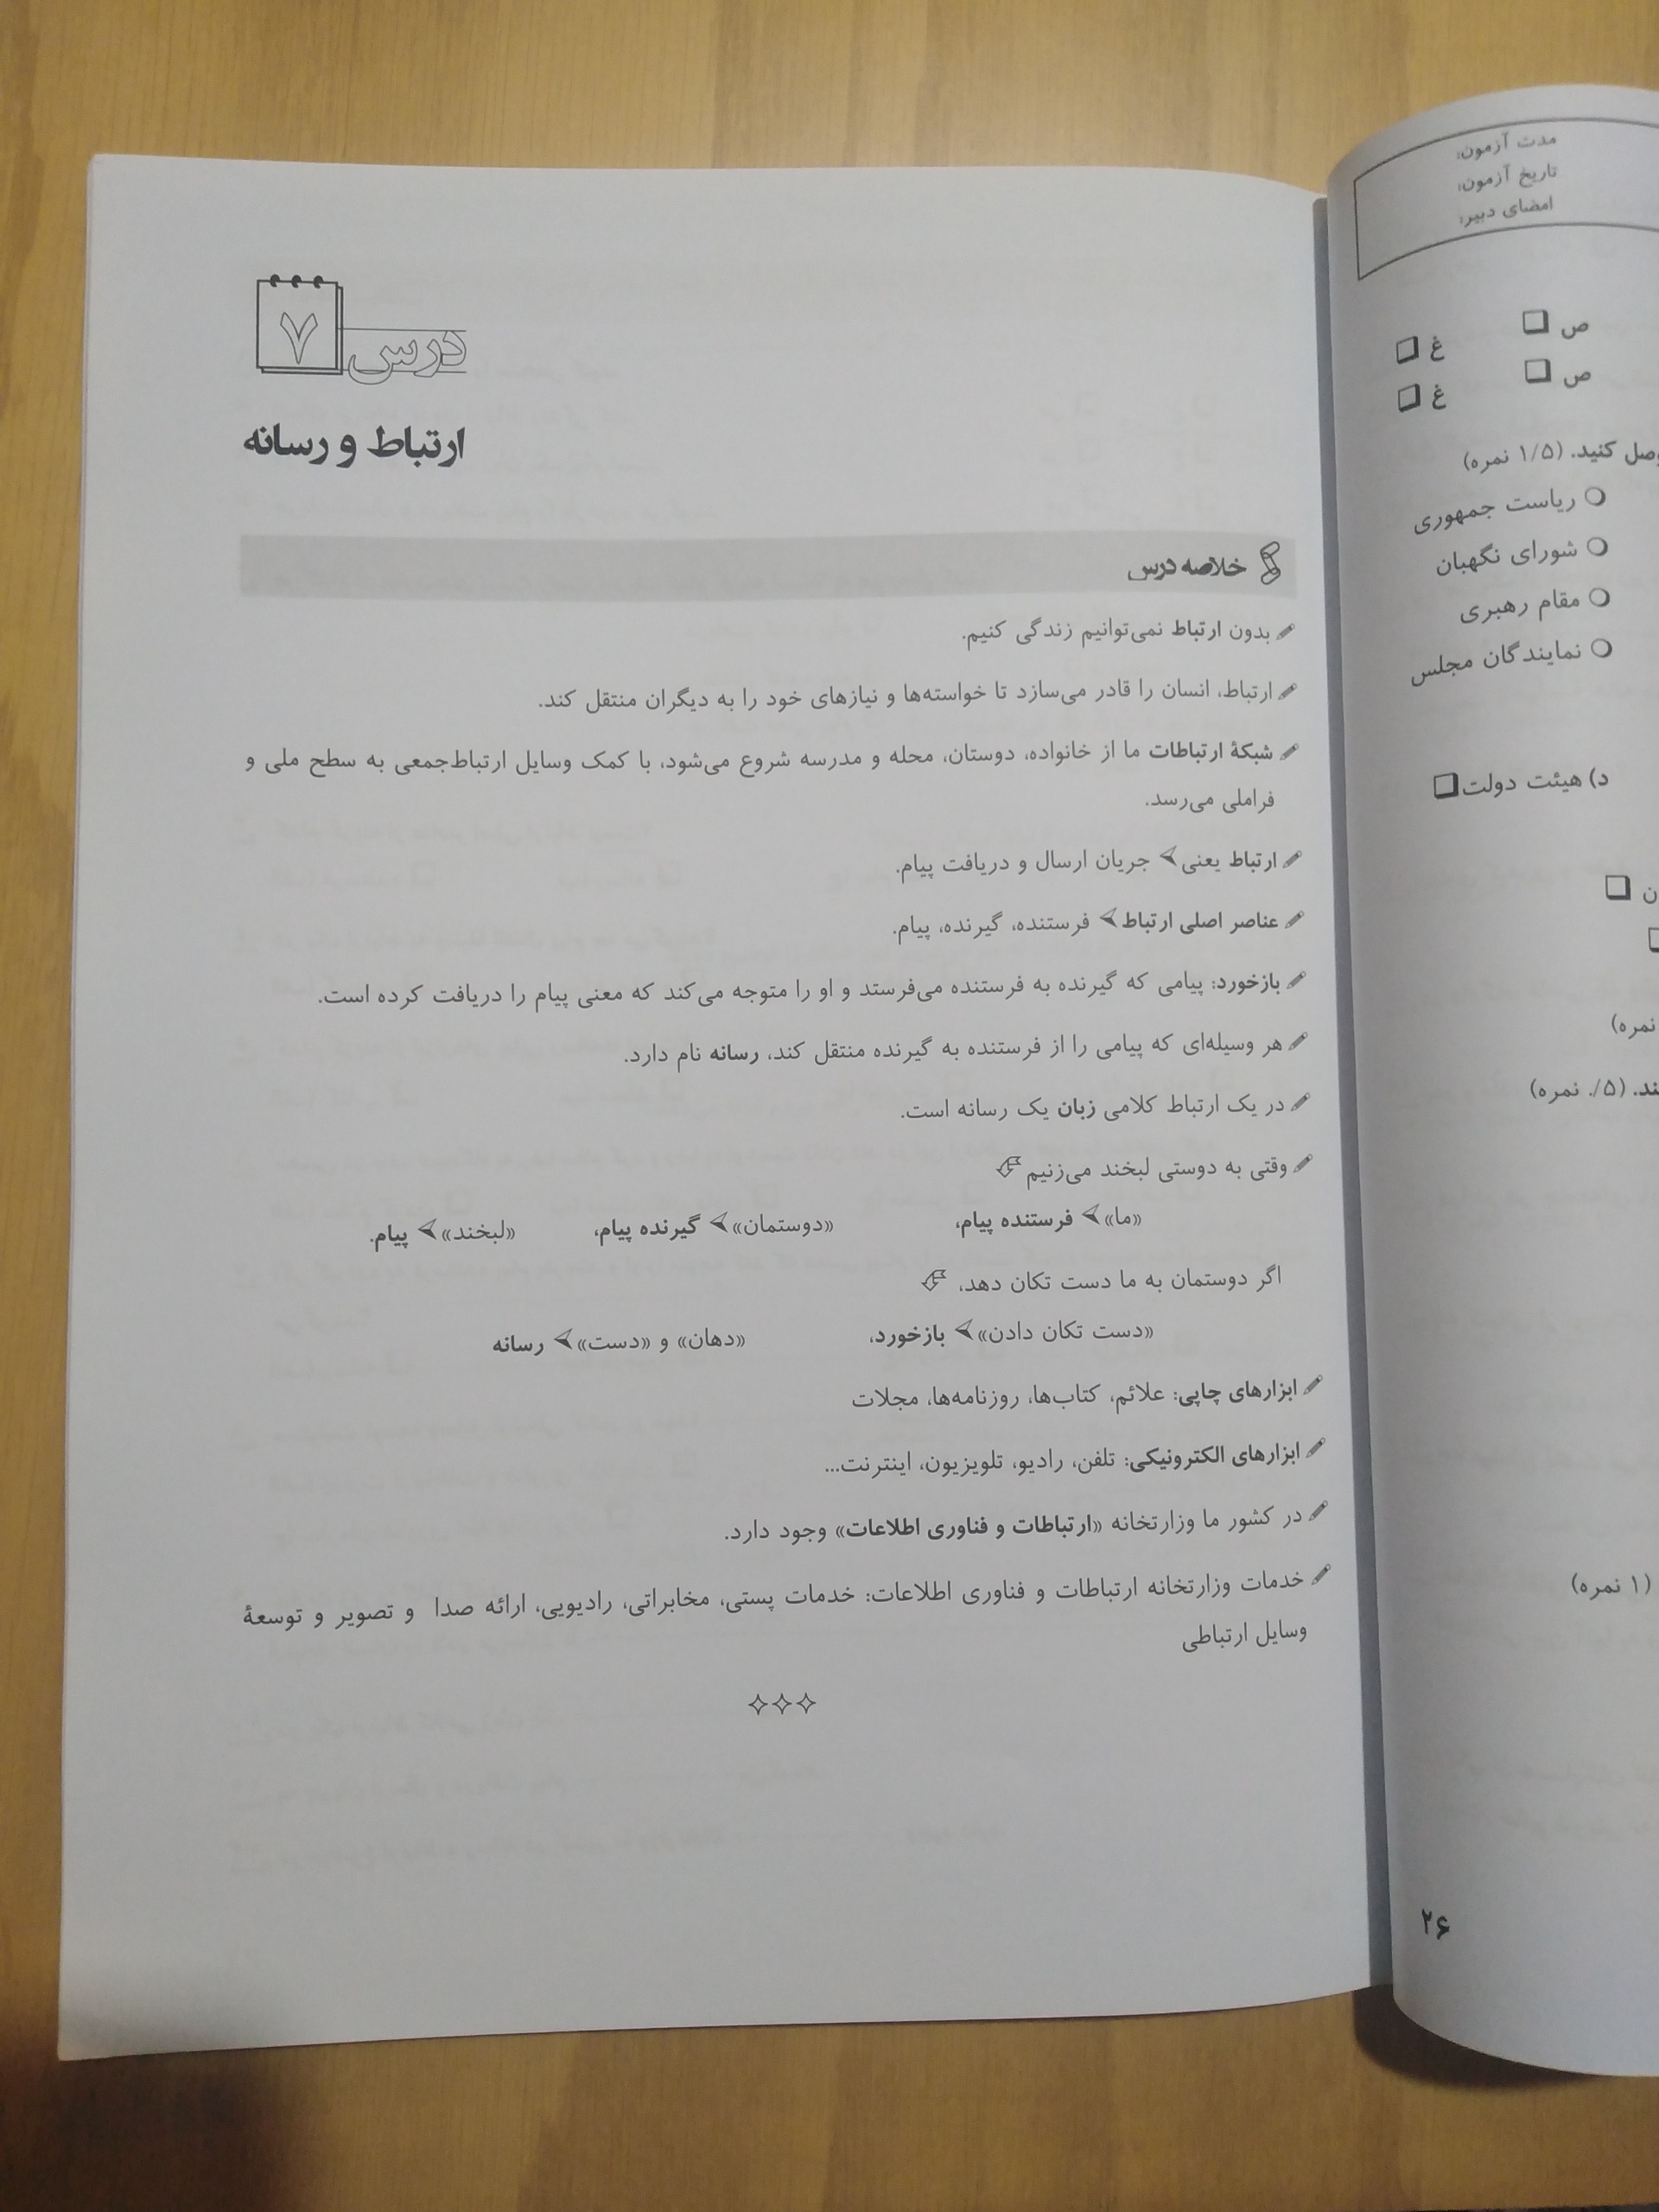 درس ۷
ارتباط و رسانه
خلاصه درس
بدون ارتباط نمی‌توانیم زندگی کنیم.
ارتباط، انسان را قادر می‌سازد تا خواسته‌ها و نیازهای خود را به دیگران منتقل کند.
شبکهٔ ارتباطات ما از خانواده، دوستان، محله و مدرسه شروع می‌شود، با کمک وسایل ارتباط‌جمعی به سطح ملی و
فراملی می‌رسد.
ارتباط یعنی جریان ارسال و دریافت پیام.
عناصر اصلی ارتباط فرستنده، گیرنده، پیام.
بازخورد: پیامی که گیرنده به فرستنده می‌فرستد و او را متوجه می‌کند که معنی پیام را دریافت کرده است.
هر وسیله‌ای که پیامی را از فرستنده به گیرنده منتقل کند، رسانه نام دارد.
در یک ارتباط کلامی زبان یک رسانه است.
وقتی به دوستی لبخند می‌زنیم
«ما» فرستنده پیام، «دوستمان» گیرنده پیام، «لبخند» پیام.
اگر دوستمان به ما دست تکان دهد،
«دست تکان دادن» بازخورد، «دهان» و «دست» رسانه
ابزارهای چاپی: علائم، کتاب‌ها، روزنامه‌ها، مجلات
ابزارهای الکترونیکی: تلفن، رادیو، تلویزیون، اینترنت...
در کشور ما وزارتخانه «ارتباطات و فناوری اطلاعات» وجود دارد.
خدمات وزارتخانه ارتباطات و فناوری اطلاعات: خدمات پستی، مخابراتی، رادیویی، ارائه صدا و تصویر و توسعهٔ
وسایل ارتباطی
مدت آزمون:
تاریخ آزمون:
امضای دبیر:
ص غ
ص غ
وصل کنید. (۱/۵ نمره)
ریاست جمهوری
شورای نگهبان
مقام رهبری
نمایندگان مجلس
د) هیئت دولت
نمره)
(۵/. نمره)
(۱ نمره)
۲۶